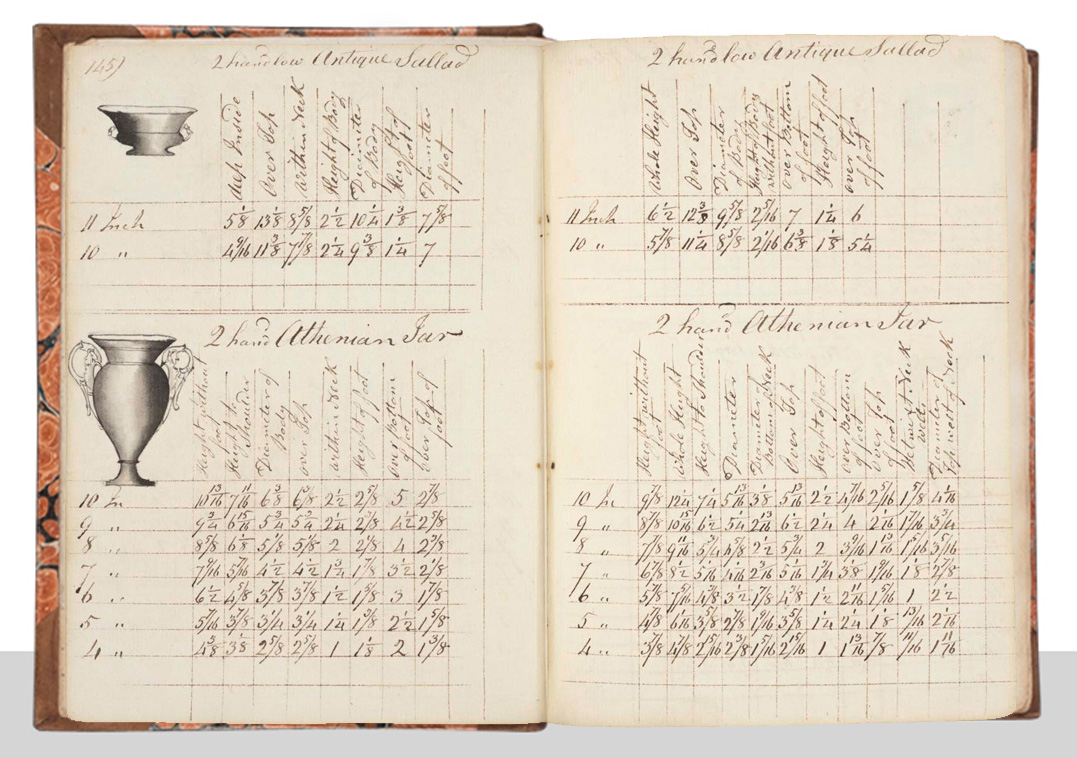 145)
2 hand low Antique Sallad
Deep Inside
Over Top
Within Neck
Height of Body
Diameter of Body
Height of foot
Diameter of foot
11 Inch 5 1/8 13 5/8 8 5/8 2 1/2 10 1/4 1 3/8 7 5/8
10 " 4 9/16 11 3/8 7 7/8 2 1/4 9 3/8 1 1/4 7
2 hand Athenian Jar
Height without foot
Height to Shoulder
Diameter of Body
over Top
within Neck
Height of foot
over Bottom of foot
over Top of foot
10 In 10 13/16 7 11/16 6 3/8 6 3/8 2 1/2 2 5/8 5 2 7/8
9 " 9 3/4 6 15/16 5 3/4 5 3/4 2 1/4 2 3/8 4 1/2 2 5/8
8 " 8 5/8 6 1/8 5 1/8 5 1/8 2 2 1/8 4 2 3/8
7 " 7 9/16 5 7/16 4 1/2 4 1/2 1 3/4 1 7/8 3 1/2 2 1/8
6 " 6 1/2 4 5/8 3 7/8 3 7/8 1 1/2 1 5/8 3 1 7/8
5 " 5 7/16 3 7/8 3 1/4 3 1/4 1 1/4 1 3/8 2 1/2 1 5/8
4 " 4 3/8 3 1/8 2 5/8 2 5/8 1 1 1/8 2 1 3/8
2 hand low Antique Sallad
Whole Height
Over Top
Diameter of Body
Height of Body without foot
over Bottom of foot
Height of foot
over Top of foot
11 Inch 6 1/2 12 3/3 9 5/8 2 5/16 7 1 1/4 6
10 " 5 7/8 11 1/4 8 5/8 2 1/16 6 3/8 1 1/8 5 1/4
2 hand Athenian Jar
Height without foot
whole Height
Height to Shoulder
Diameter
Diameter Bottom of Neck
Over Top
Height of foot
over Bottom of foot
over Top of foot
Diameter of Top most of Neck
10 In 9 7/8 12 1/4 7 1/4 5 13/16 3 1/8 5 13/16 2 1/2 4 7/16 2 5/16 1 5/8 4 1/16
9 " 8 7/8 10 15/16 6 1/2 5 1/4 2 13/16 6 1/2 2 1/4 4 2 1/16 1 7/16 3 3/4
8 " 7 7/8 9 11/16 5 3/4 4 5/8 2 1/2 5 3/4 2 3 9/16 1 13/16 1 5/16 3 5/16
7 " 6 7/8 8 1/2 5 1/16 4 1/16 2 3/16 5 1/16 1 3/4 3 1/8 1 9/16 1 1/8 2 7/8
6 " 5 7/8 7 5/16 4 3/8 3 1/2 1 7/8 4 3/8 1 1/2 2 11/16 1 5/16 1 2 1/2
5 " 4 7/8 6 1/16 3 5/8 2 7/8 1 9/16 3 5/8 1 1/4 2 1/4 1 1/8 13/16 2 1/16
4 " 3 7/8 4 7/8 2 15/16 2 3/8 1 5/16 2 15/16 1 1 13/16 7/8 11/16 1 11/16